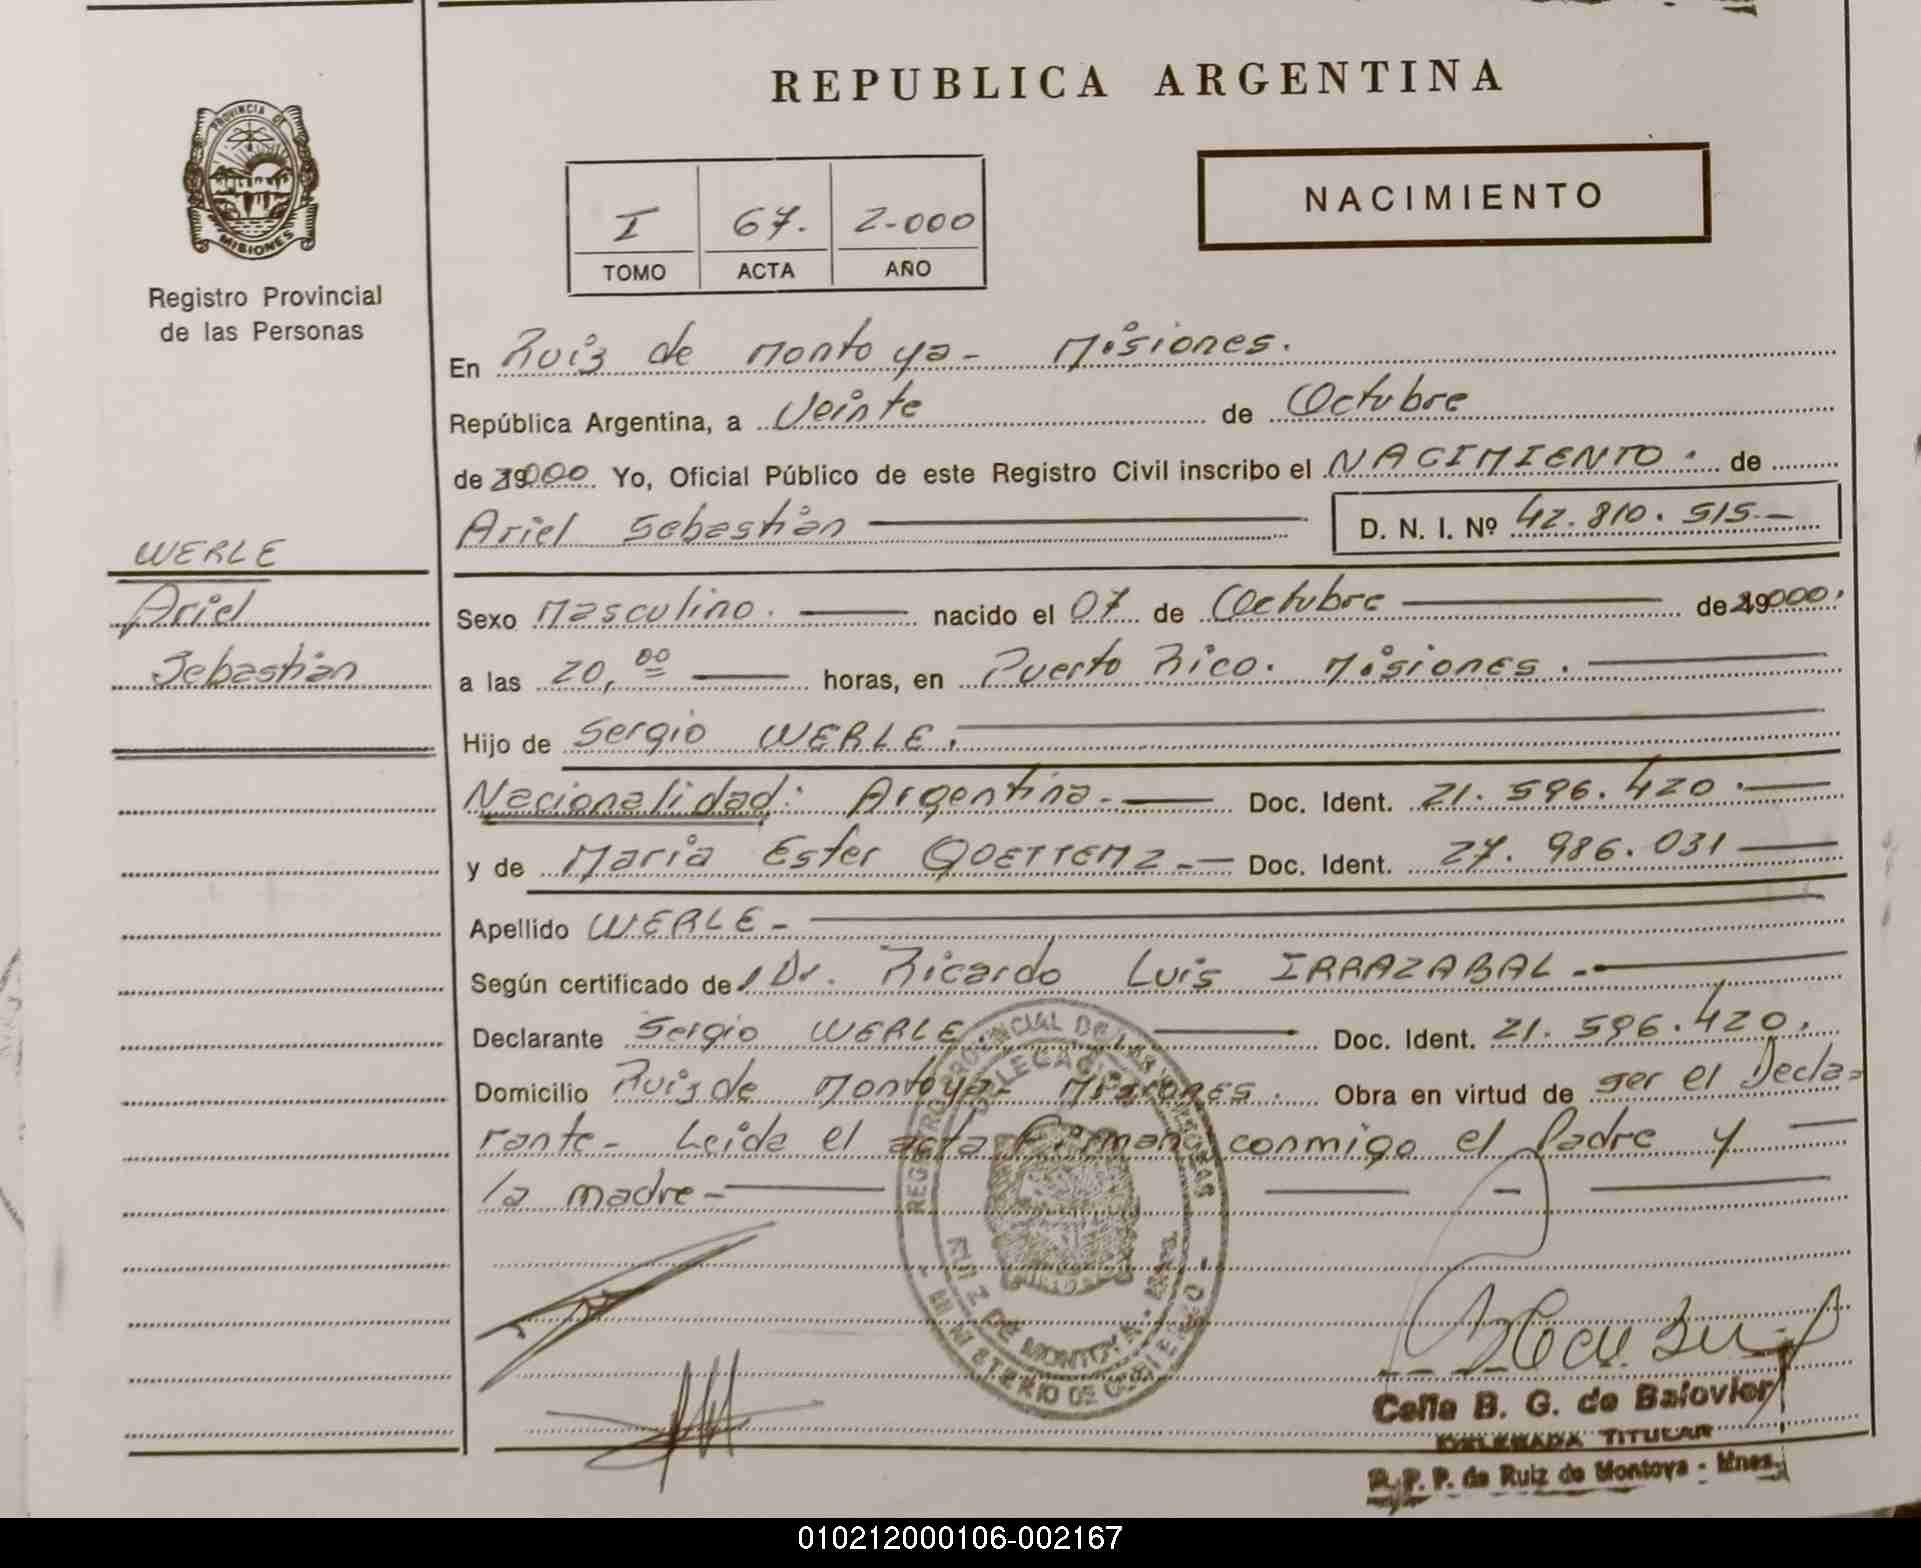 REPUBLICA ARGENTINA
PROVINCIA DE
MISIONES
Registro Provincial
de las Personas
NACIMIENTO
I 67. 2-000
TOMO ACTA AÑO
En Ruiz de Montoya- Misiones.
República Argentina, a Veinte de Octubre
de 2000 Yo, Oficial Público de este Registro Civil inscribo el NACIMIENTO. de
Ariel Sebastián D. N. I. Nº 42.810.515-
WERLE
Ariel
Sebastián
Sexo Masculino. nacido el 07 de Octubre de 2000.
a las 20,00 horas, en Puerto Rico. Misiones.
Hijo de Sergio WERLE.
Nacionalidad: Argentina.- Doc. Ident. 21.596.420.
y de María Ester Doc. Ident. 27.986.031
Apellido WERLE-
Según certificado del Dr. Ricardo Luis IRRAZABAL.-
Declarante Sergio WERLE Doc. Ident. 21.596.420.
Domicilio Ruiz de Montoya- Misiones. Obra en virtud de ser el Decla-
rante- Leída el acta Firman conmigo el Padre y
la madre-
REGISTRO PROVINCIAL DE LAS PERSONAS
DELEGACION
RUIZ DE MONTOYA
MINISTERIO DE GOBIERNO
Celia B. G. de Balovier
DELEGADA TITULAR
R. P. P. de Ruiz de Montoya - Mnes.
010212000106-002167